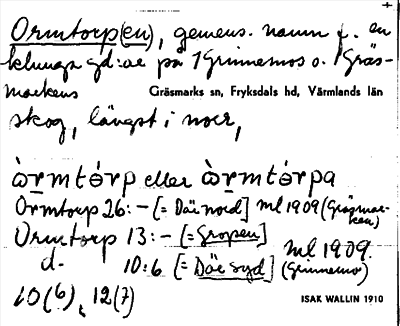 Ormtorp(en), gemens. namn f. en
klunga gd:ar på 1 Grinnemos o. 1 Gräs-
markens Gräsmarks sn, Fryksdals hd, Värmlands län
skog, längst i norr,
ò̀rmtó̀rp eller ò̀rmtó̀rpa
Ormtorp 26: – [= Där nord] ml 1909 (Gräsmar-
ken)
Ormtorp 13: – [= Gropen]
d- 10:6 [= Där syd] ml 1909
(Grinnemo)
10(6), 12(7)
ISAK WALLIN 1910